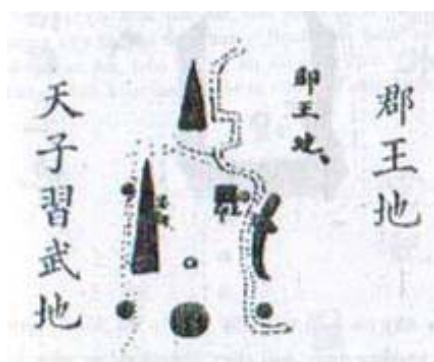 郡王地
郡王地
天子習武地